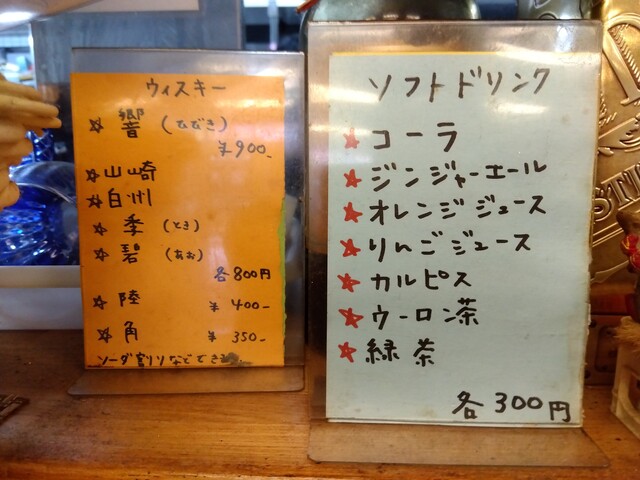 ウィスキー
☆ 響 (ひびき)
¥900-
☆ 山崎
☆ 白州
☆ 季 (とき)
☆ 碧 (あお)
各800円
☆ 陸 ¥400-
☆ 角 ¥350-
ソーダ割りなどできます。
ソフトドリンク
★ コーラ
★ ジンジャーエール
★ オレンジジュース
★ りんごジュース
★ カルピス
★ ウーロン茶
★ 緑茶
各300円